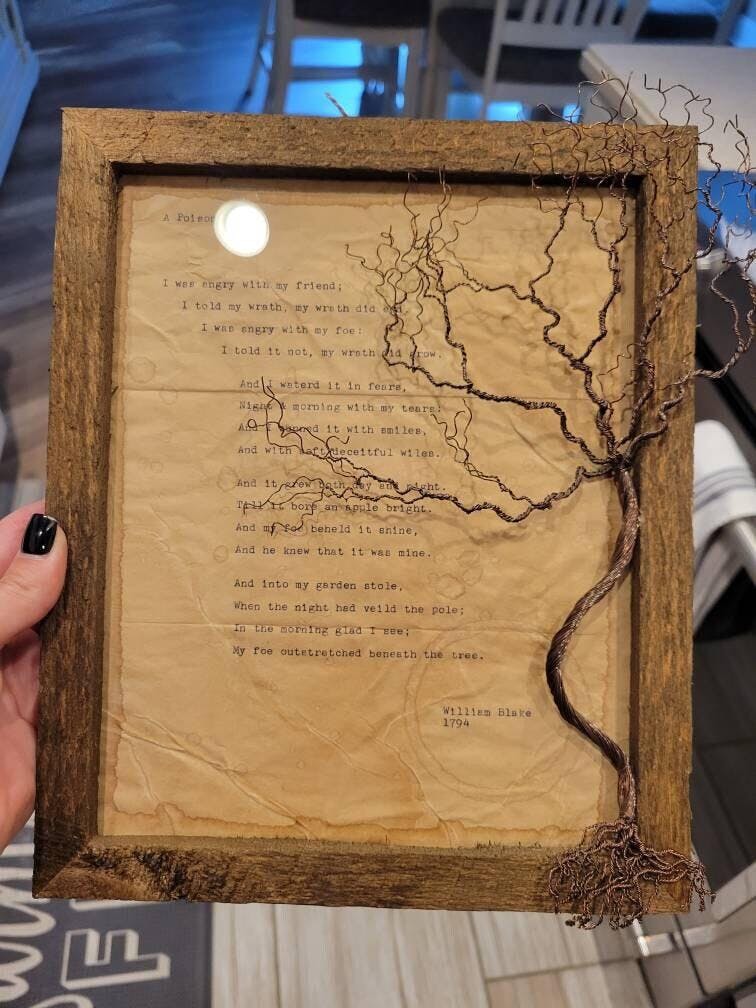 A Poison
I was angry with my friend;
I told my wrath, my wrath did end.
I was angry with my foe:
I told it not, my wrath did grow.
And I waterd it in fears,
Night & morning with my tears:
And I sunned it with smiles,
And with soft deceitful wiles.
And it grew both day and night.
Till it bore an apple bright.
And my foe beheld it shine,
And he knew that it was mine.
And into my garden stole,
When the night had veild the pole;
In the morning glad I see;
My foe outstretched beneath the tree.
William Blake
1794